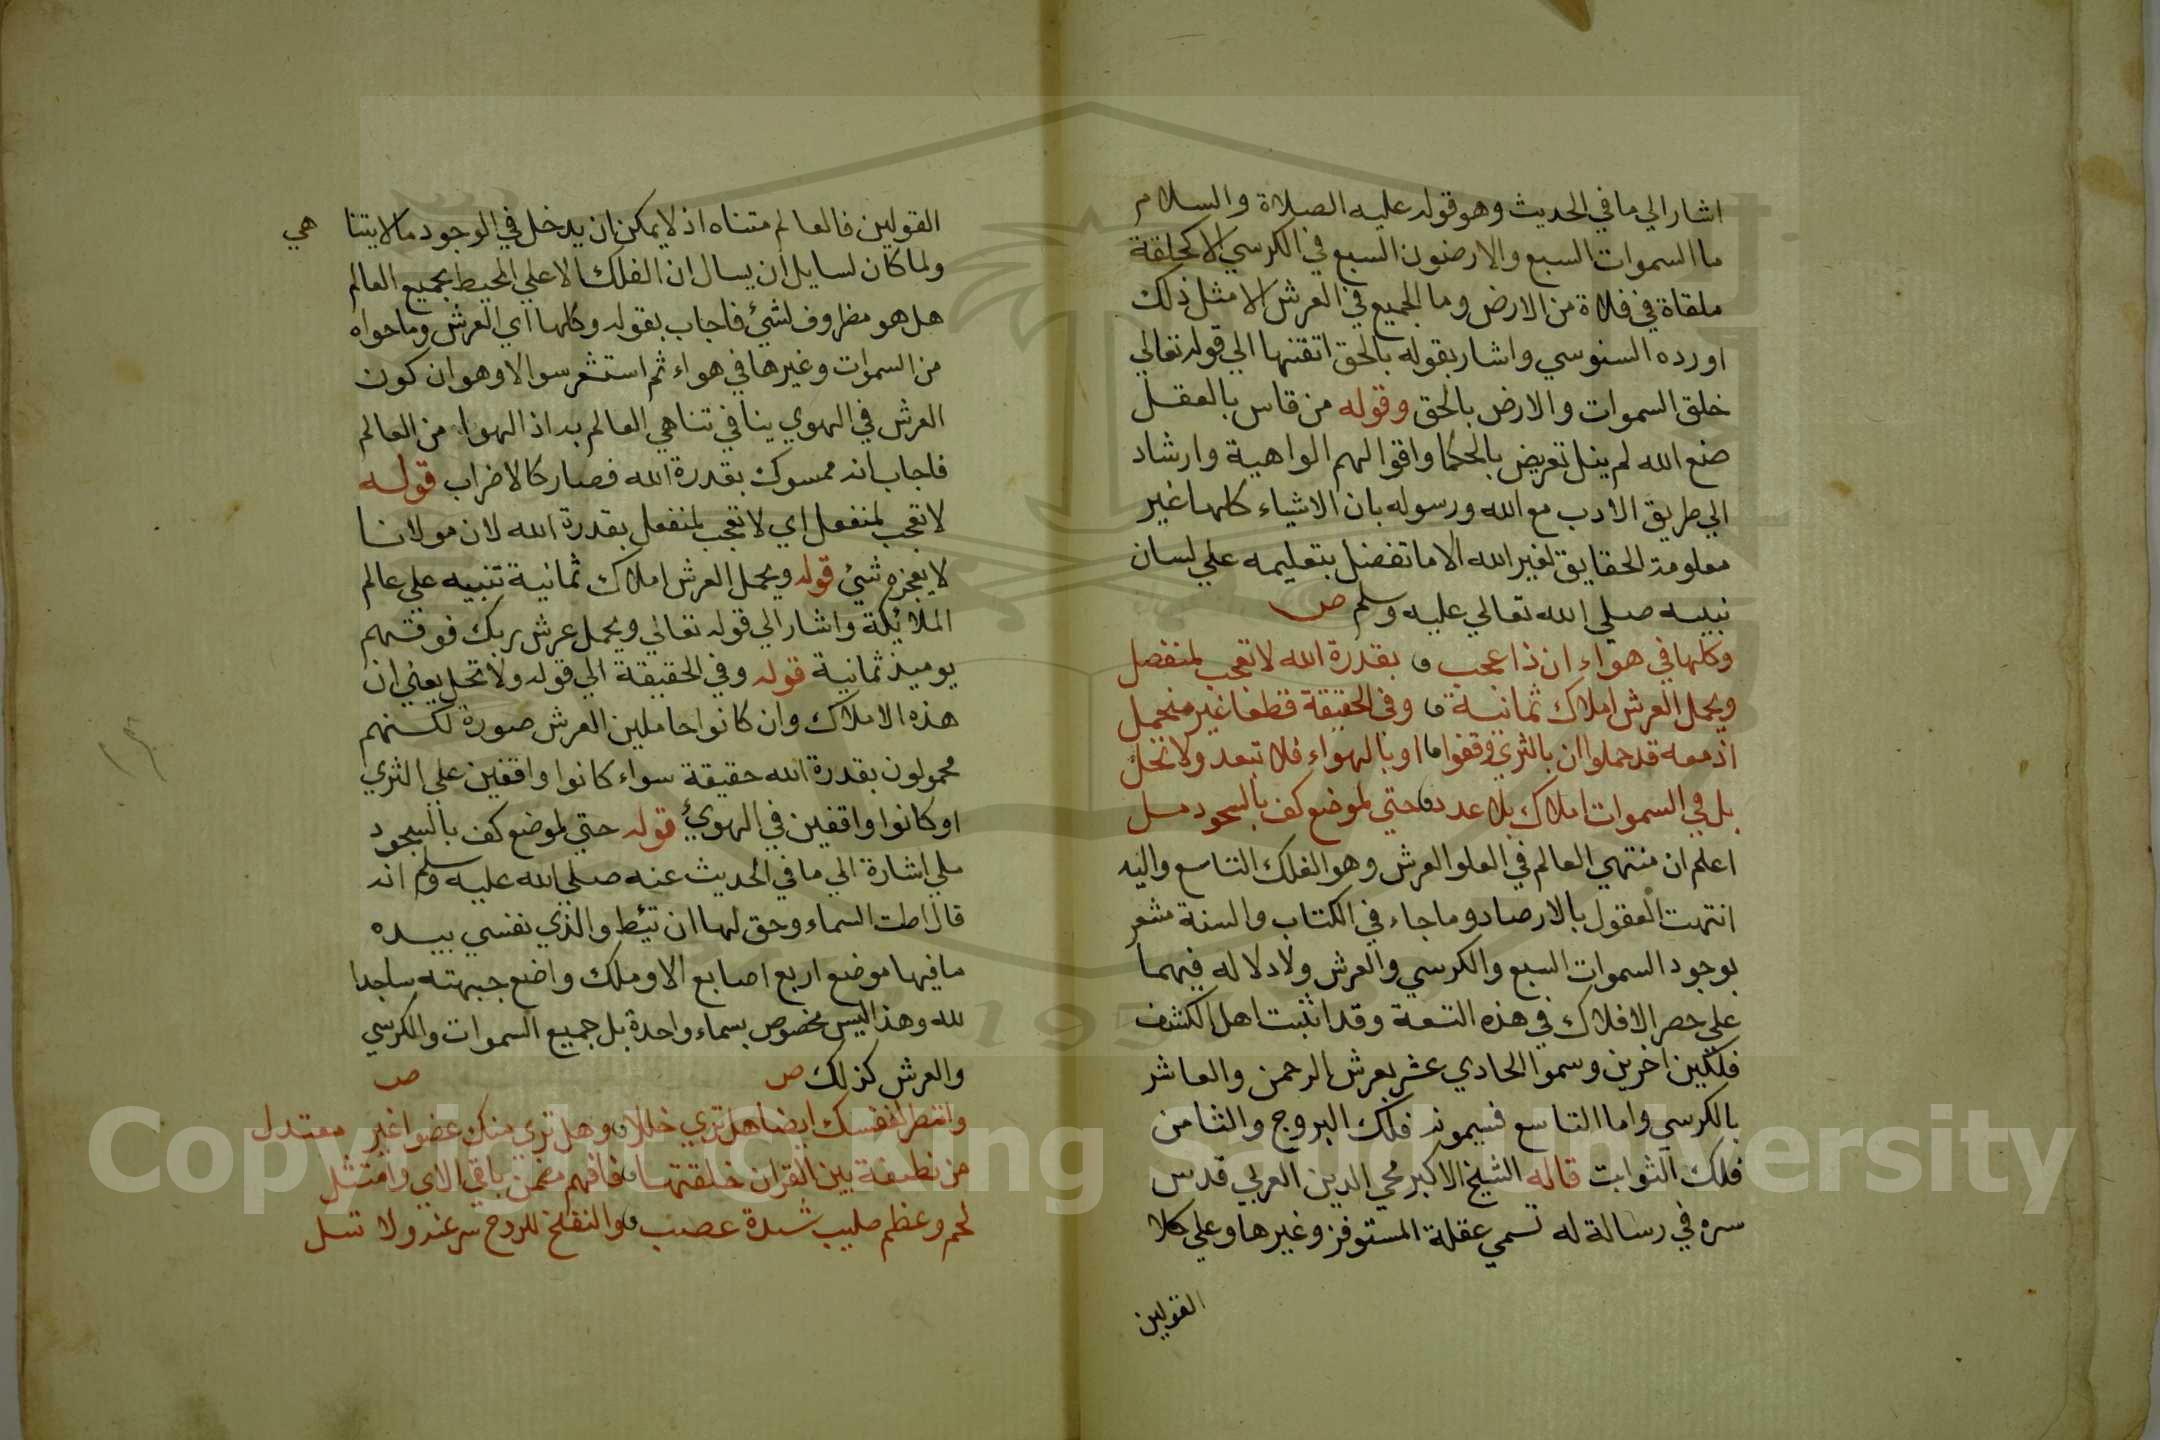 اشار الي ما في الحديث وهو قوله عليه الصلاة والسلام
ما السموات السبع والارضون السبع في الكرسي الا كحلقة
ملقاة في فلاة من الارض وما الجميع في العرش الا مثل ذلك
اورده السنوسي واشار بقوله بالحق اتقنها الي قوله تعالي
خلق السموات والارض بالحق وقوله من قاس بالعقل
صنع الله لم ينل تعريض بالحكما واقوالهم الواهية وارشاد
الي طريق الادب مع الله ورسوله بان الاشياء كلها غير
معلومة الحقايق لغير الله الا ما تفضل بتعليمه علي لسان
نبيه صلي الله تعالي عليه وسلم ص
وكلها في هواء ان ذا عجب بقدرة الله لا تعجب لمنفصل
ويحمل العرش املاك ثمانية وفي الحقيقة قطعا غير منحمل
اذ معه قد حملوا ان بالثري وقفوا او بالهواء فلا تبعد ولا تخل
بل في السموات املاك بلا عدد حتي لموضع كف بالسجود مل
اعلم ان منتهي العالم في العلو العرش وهو الفلك التاسع واليه
انتهت العقول بالارصاد وما جاء في الكتاب والسنة مشعر
بوجود السموات السبع والكرسي والعرش ولا دلاله فيهما
علي حصر الافلاك في هذه التسعة وقد اثبت اهل الكشف
فلكين اخرين وسموا الحادي عشر بعرش الرحمن والعاشر
بالكرسي واما التاسع فيسمونه فلك البروج والثامن
فلك الثوابت قاله الشيخ الاكبر محي الدين العربي قدس
سره في رسالة له تسمي عقلة المستوفز وغيرها وعلي كلا
القولين
القولين فالعالم متناه اذ لا يمكن ان يدخل في الوجود ما لا يتنا هي
ولما كان لسايل ان يسال ان الفلك الاعلي المحيط بجميع العالم
هل هو مظروف لشئ فاجاب بقوله وكلها اي العرش وما حواه
من السموات وغيرها في هواء ثم استشعر سوالا وهو ان كون
العرش في الهوي ينافي تناهي العالم به اذ الهوا من العالم
فاجاب انه ممسوك بقدرة الله فصار كالاضراب قوله
لا تعجب لمنفعل اي لا تعجب لمنفعل بقدرة الله لان مولانا
لا يعجزه شئ قوله ويحمل العرش املاك ثمانية تنبيه علي عالم
الملائكة واشار الي قوله تعالي ويحمل عرش ربك فوقهم
يوميذ ثمانية قوله وفي الحقيقة الي قوله ولا تخل يعني ان
هذه الاملاك وان كانوا حاملين العرش صورة لكنهم
محمولون بقدرة الله حقيقة سواء كانوا واقفين علي الثري
او كانوا واقفين في الهوي قوله حتي لموضع كف بالسجود
ملي اشارة الي ما في الحديث عنه صلي الله عليه وسلم انه
قال اطت السماء وحق لها ان تئط والذي نفسي بيده
ما فيها موضع اربع اصابع الا وملك واضع جبهته ساجدا
لله وهذا ليس مخصوص بسماء واحدة بل جميع السموات والكرسي
والعرش كذلك ص ص
وانظر لنفسك ايضا هل تري خللا وهل تري منك عضوا غير معتدل
من نطفة بين اقران خلقتها فافهم مضمن باقي الاي وامتثل
لحم وعظم صليب شدة عصب والنفخ للروح سر عنه ولا تسل
Copyright © King Saud University